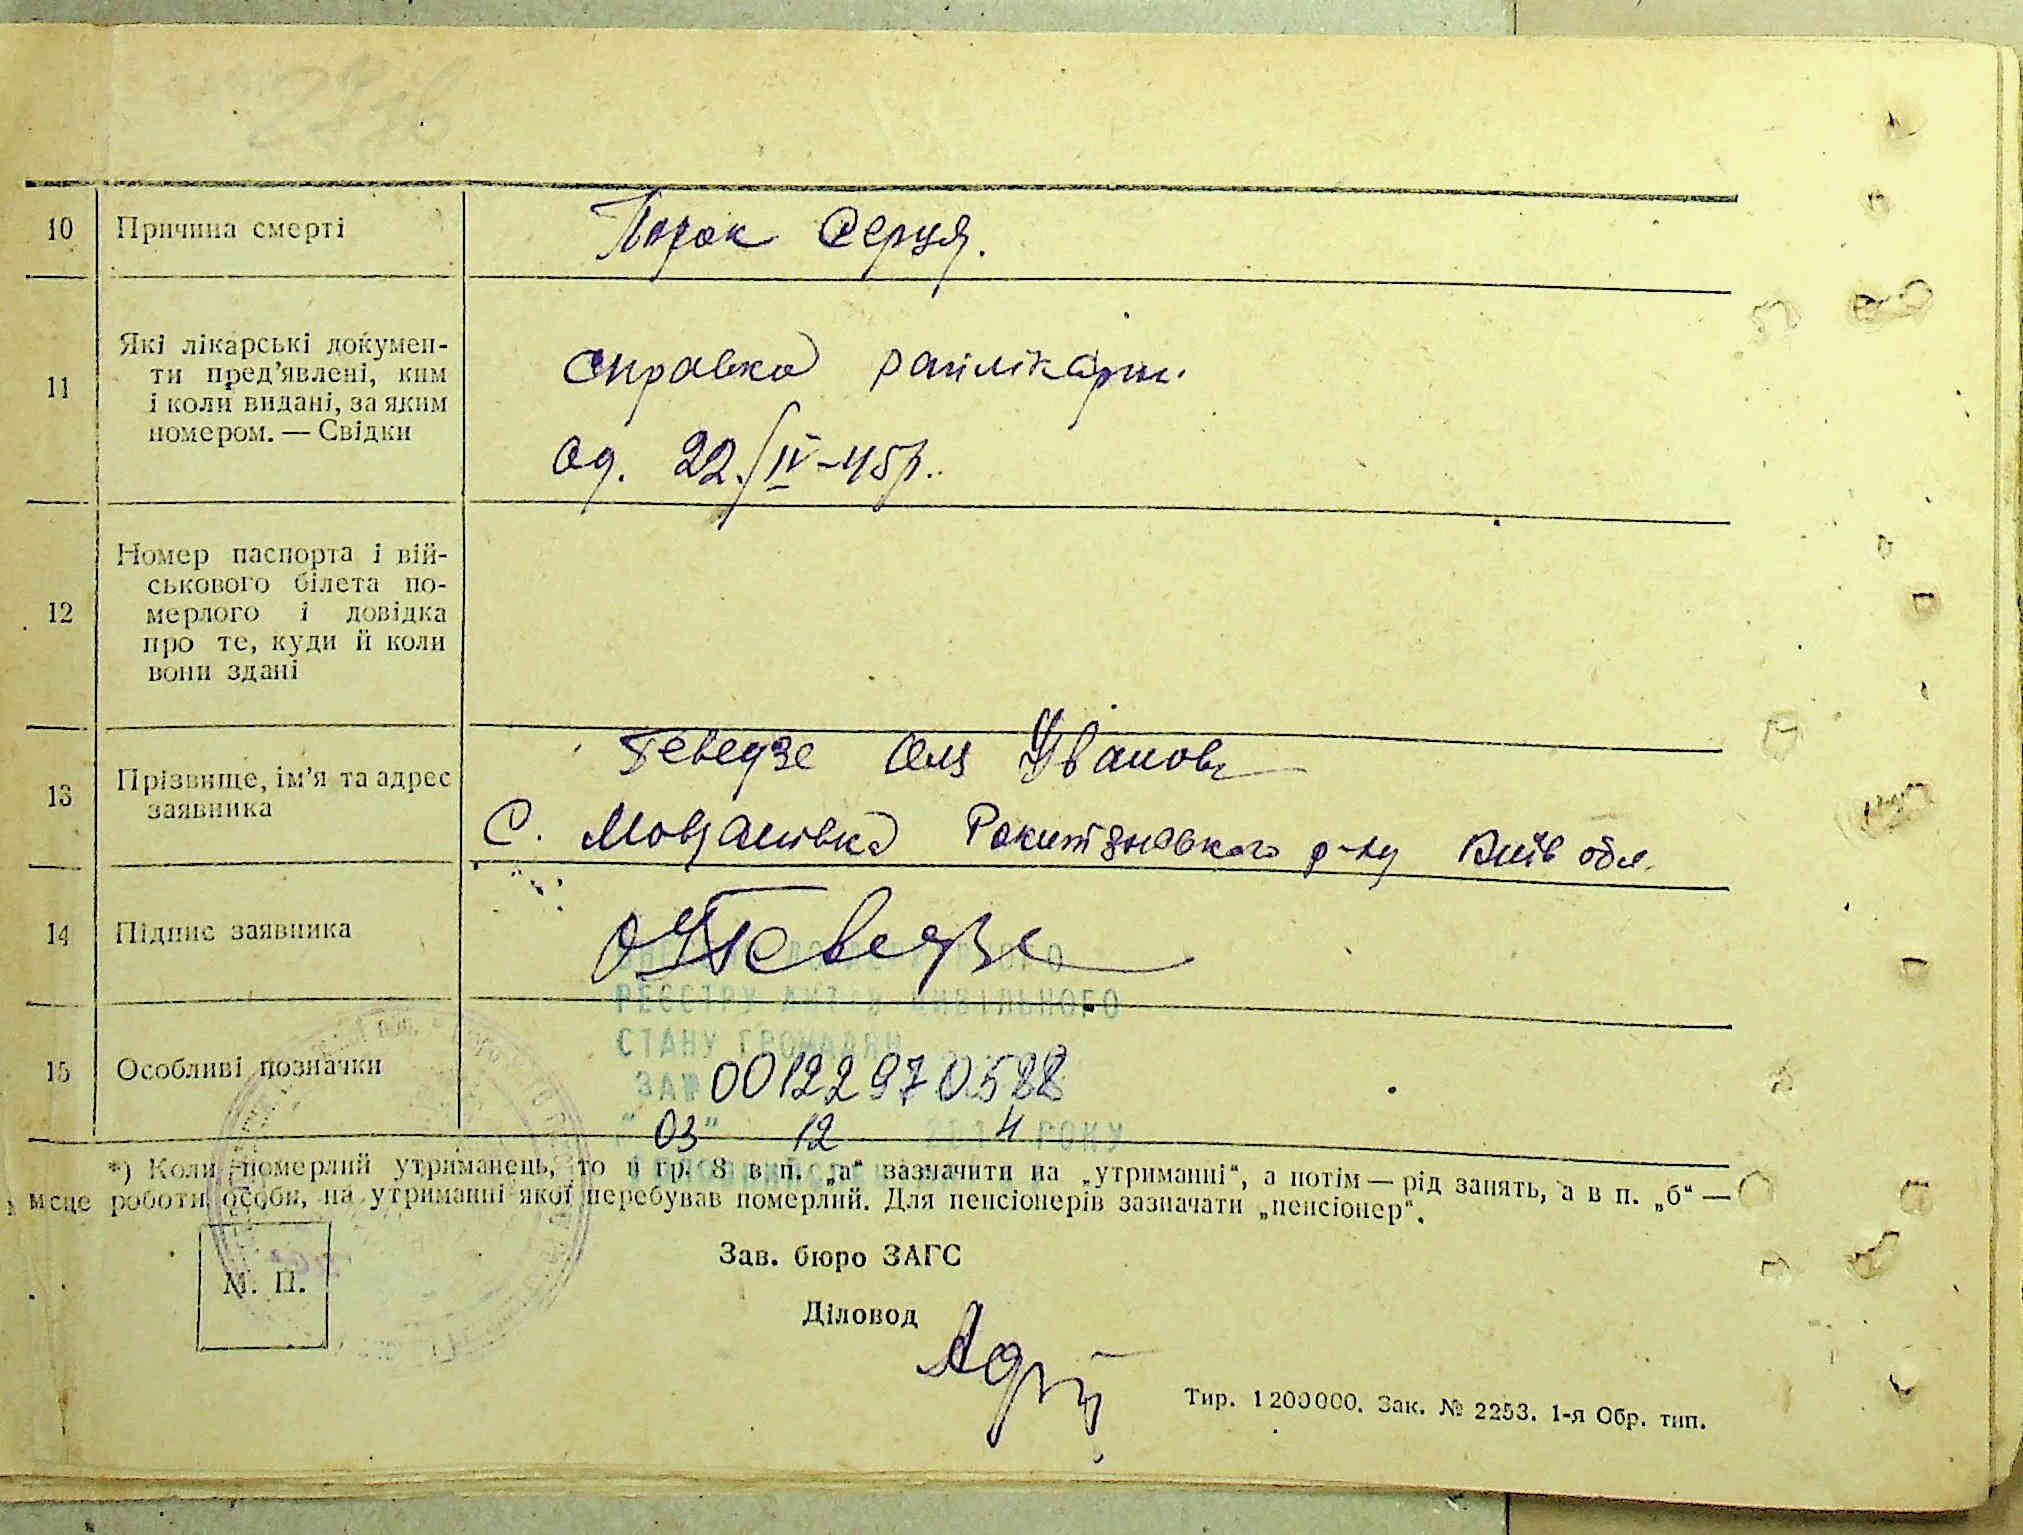 10 Причина смерті
Порок Серця.
11 Які лікарські докумен-
ти пред’явлені, ким
і коли видані, за яким
номером. — Свідки
справка райлікарні
од. 22./IV-45р.
12 Номер паспорта і вій-
ськового білета по-
мерлого і довідка
про те, куди й коли
вони здані
13 Прізвище, ім’я та адрес
заявника
Геведзе Оля Іванов
С. Рокитнянського р-ну Київ обл.
14 Підпис заявника
15 Особливі позначки
РЕЄСТРУ АКТІВ ЦИВІЛЬНОГО
СТАНУ ГРОМАДЯН
ЗА № 00122970588
"03" 12 2014 РОКУ
*) Коли померлий утриманець, то в гр. 8 в п. „а“ зазначити на „утриманні“, а потім — рід занять, а в п. „б“ —
місце роботи особи, на утриманні якої перебував померлий. Для пенсіонерів зазначати „пенсіонер“.
М. П.
Зав. бюро ЗАГС
Діловод
Тир. 1 200 000. Зак. № 2253. 1-я Обр. тип.